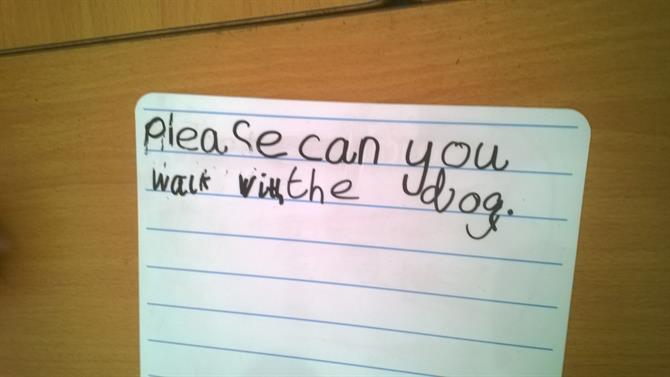 please can you
walk with the dog.